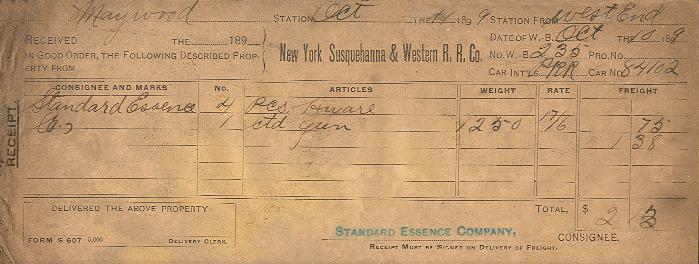 Maywood STATION Oct THE 11 1899 STATION FROM West End
RECEIVED THE 189 DATE OF W.-B. Oct THE 10 189
IN GOOD ORDER, THE FOLLOWING DESCRIBED PROP- New York Susquehanna & Western R. R. Co. No. W.-B. 235 PRO. No.
ERTY FROM CAR INT'LS PRR CAR No. 84102
CONSIGNEE AND MARKS No. ARTICLES WEIGHT RATE FREIGHT
Standard Essence 4 Pcs Hware
Co. 1 ctd Gun 1250 17/6 75
1 38
RECEIPT.
TOTAL, $ 2 13
DELIVERED THE ABOVE PROPERTY
STANDARD ESSENCE COMPANY,
CONSIGNEE.
FORM S 607 5,000 DELIVERY CLERK. RECEIPT MUST BE SIGNED ON DELIVERY OF FREIGHT.